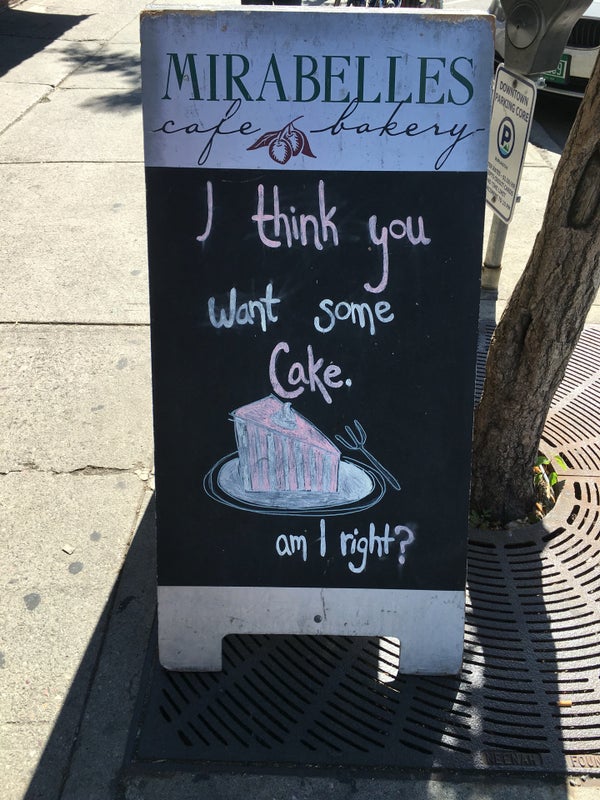 MIRABELLES
cafe & bakery
I think you
Want some
Cake.
am I right?
DOWNTOWN
PARKING CORE
P
NEENAH FOUN